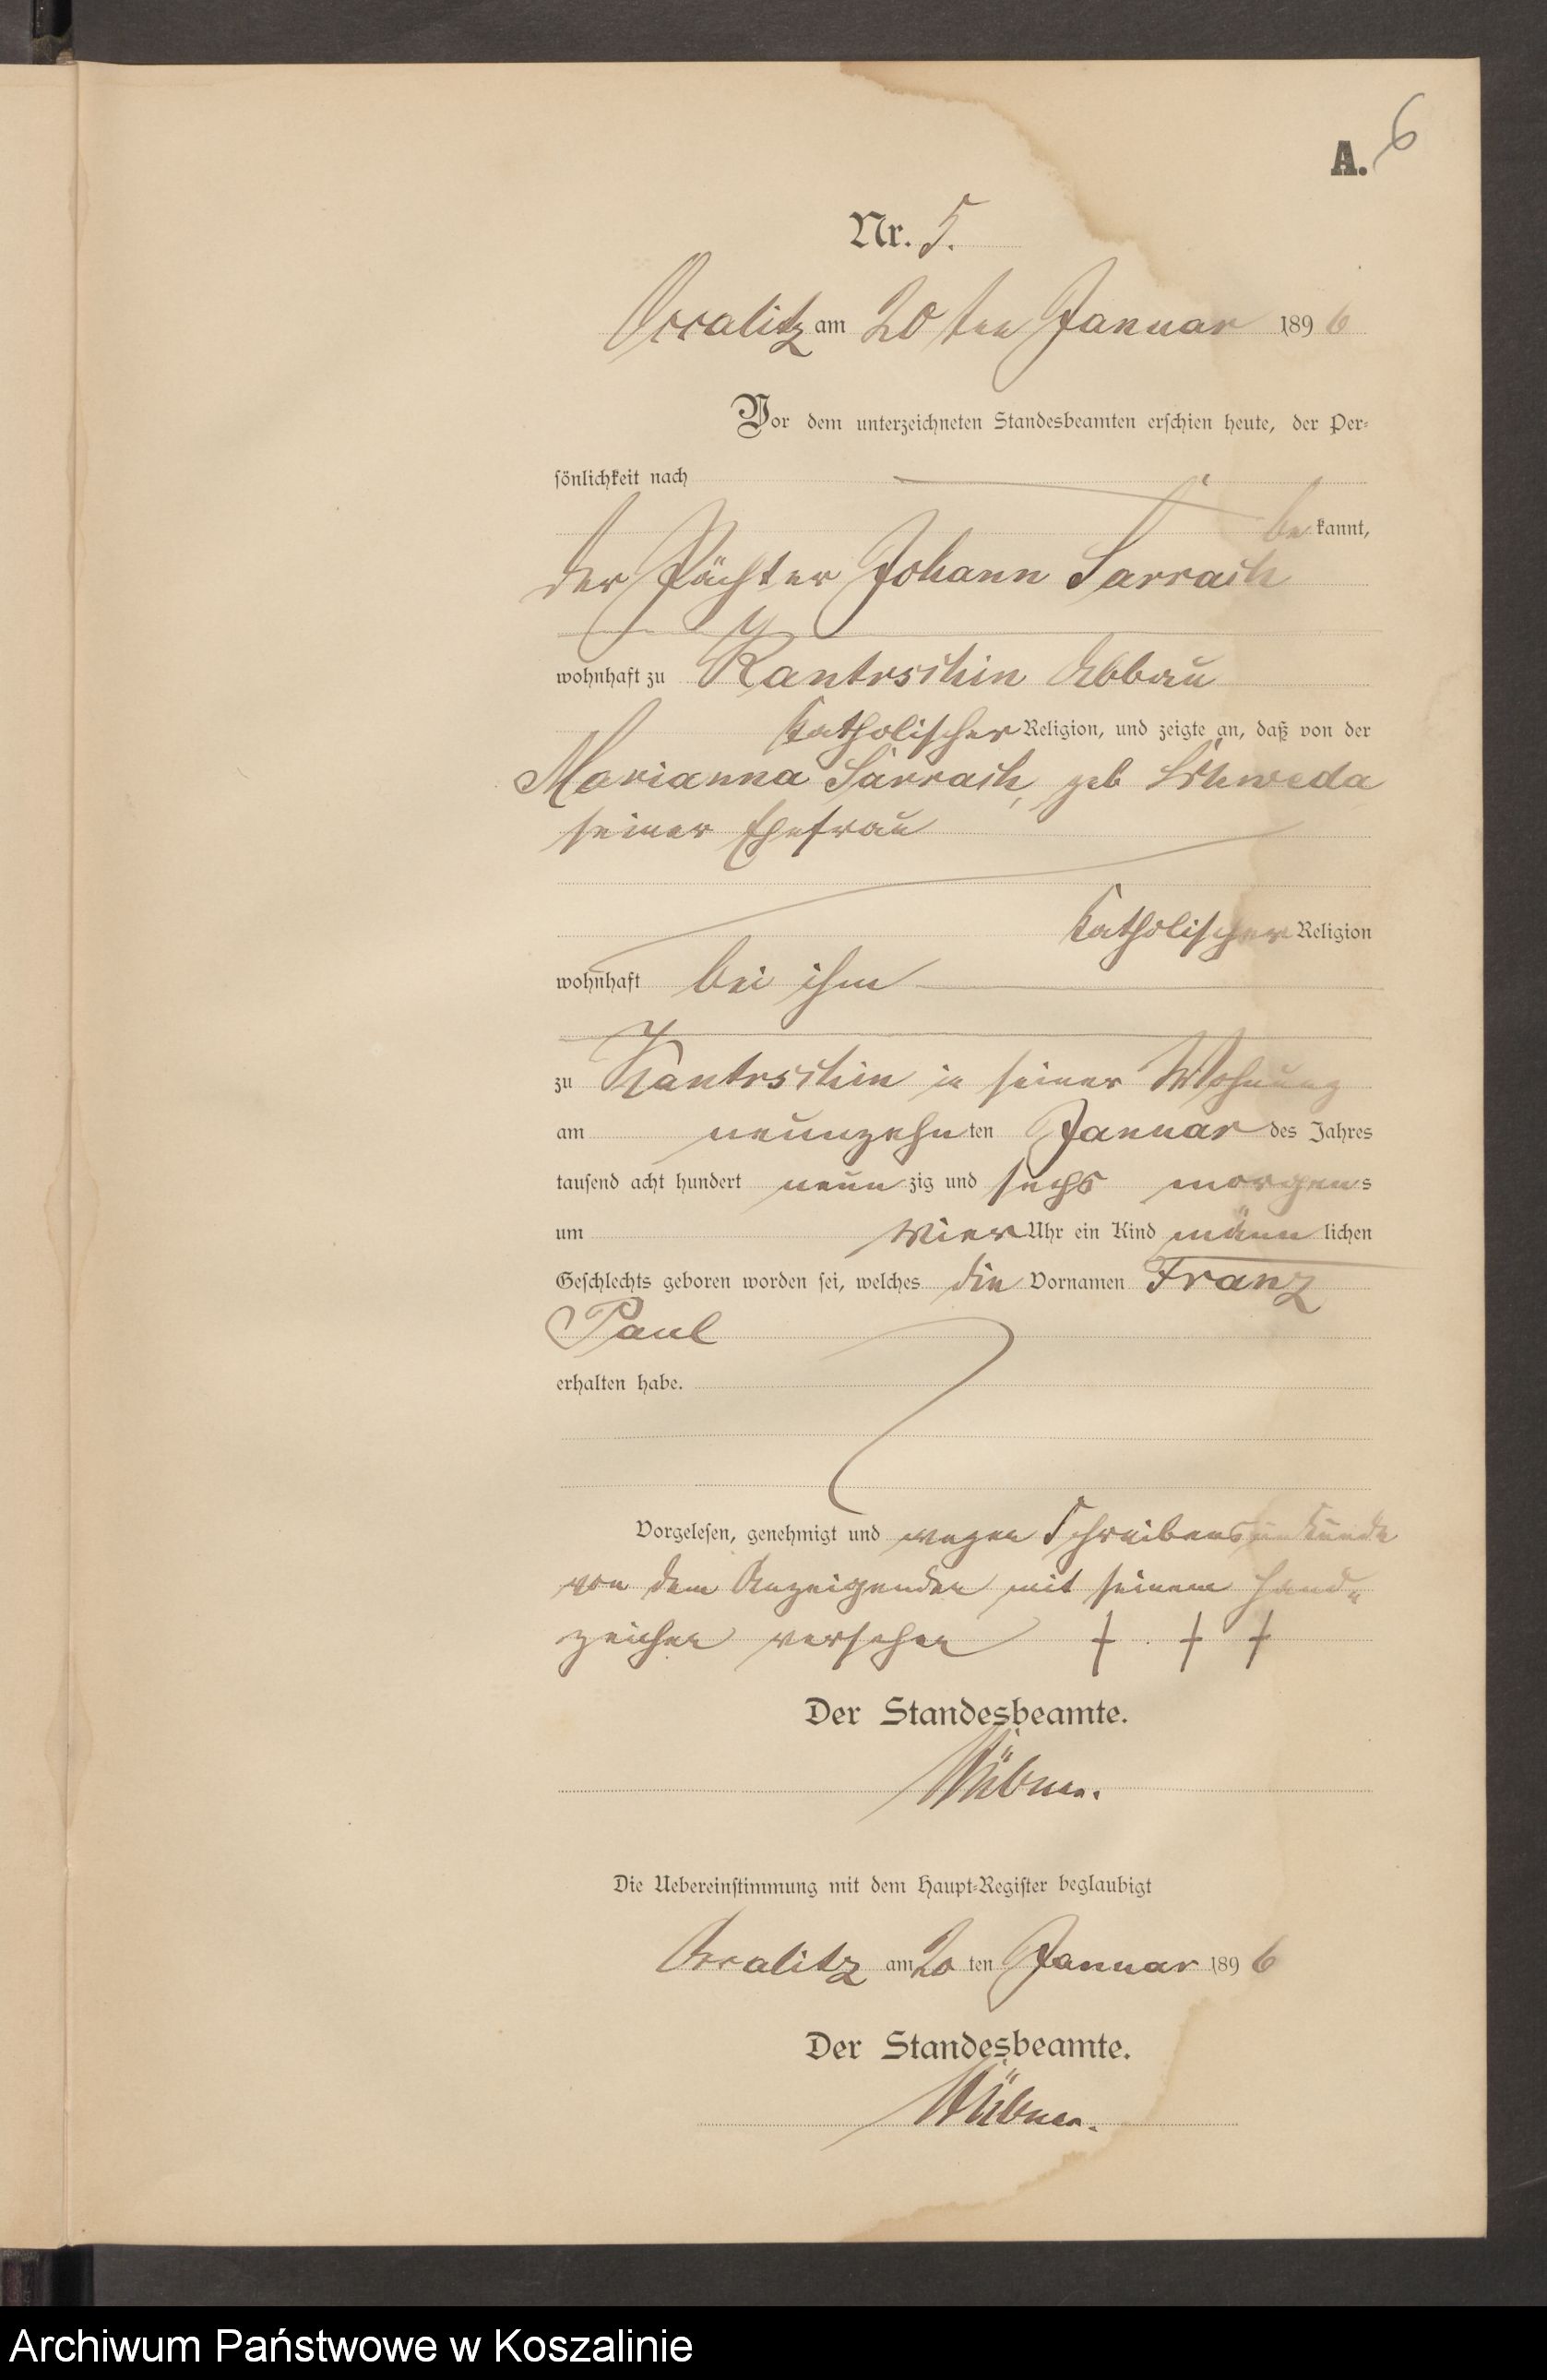 A. 6
Nr. 5.
Ossalitz am 20 ten Januar 1896
Vor dem unterzeichneten Standesbeamten erschien heute, der Per-
sönlichkeit nach
be kannt,
der Pächter Johann Sarrach
wohnhaft zu Kantrschin Abbau
katholischer Religion, und zeigte an, daß von der
Marianna Sarrach, geb Schweda
seiner Ehefrau
katholischer Religion
wohnhaft bei ihm
zu Kantrschin in seiner Wohnung
am neunzehn ten Januar des Jahres
tausend acht hundert neun zig und sechs morgens
um vier Uhr ein Kind männ lichen
Geschlechts geboren worden sei, welches die Vornamen Franz
Paul
erhalten habe.
Vorgelesen, genehmigt und wegen Schreibensunkunde
von dem Anzeigenden mit seinem Hand-
zeichen versehen + + +
Der Standesbeamte.
Die Uebereinstimmung mit dem Haupt-Register beglaubigt
Ossalitz am 20 ten Januar 1896
Der Standesbeamte.
Archiwum Państwowe w Koszalinie